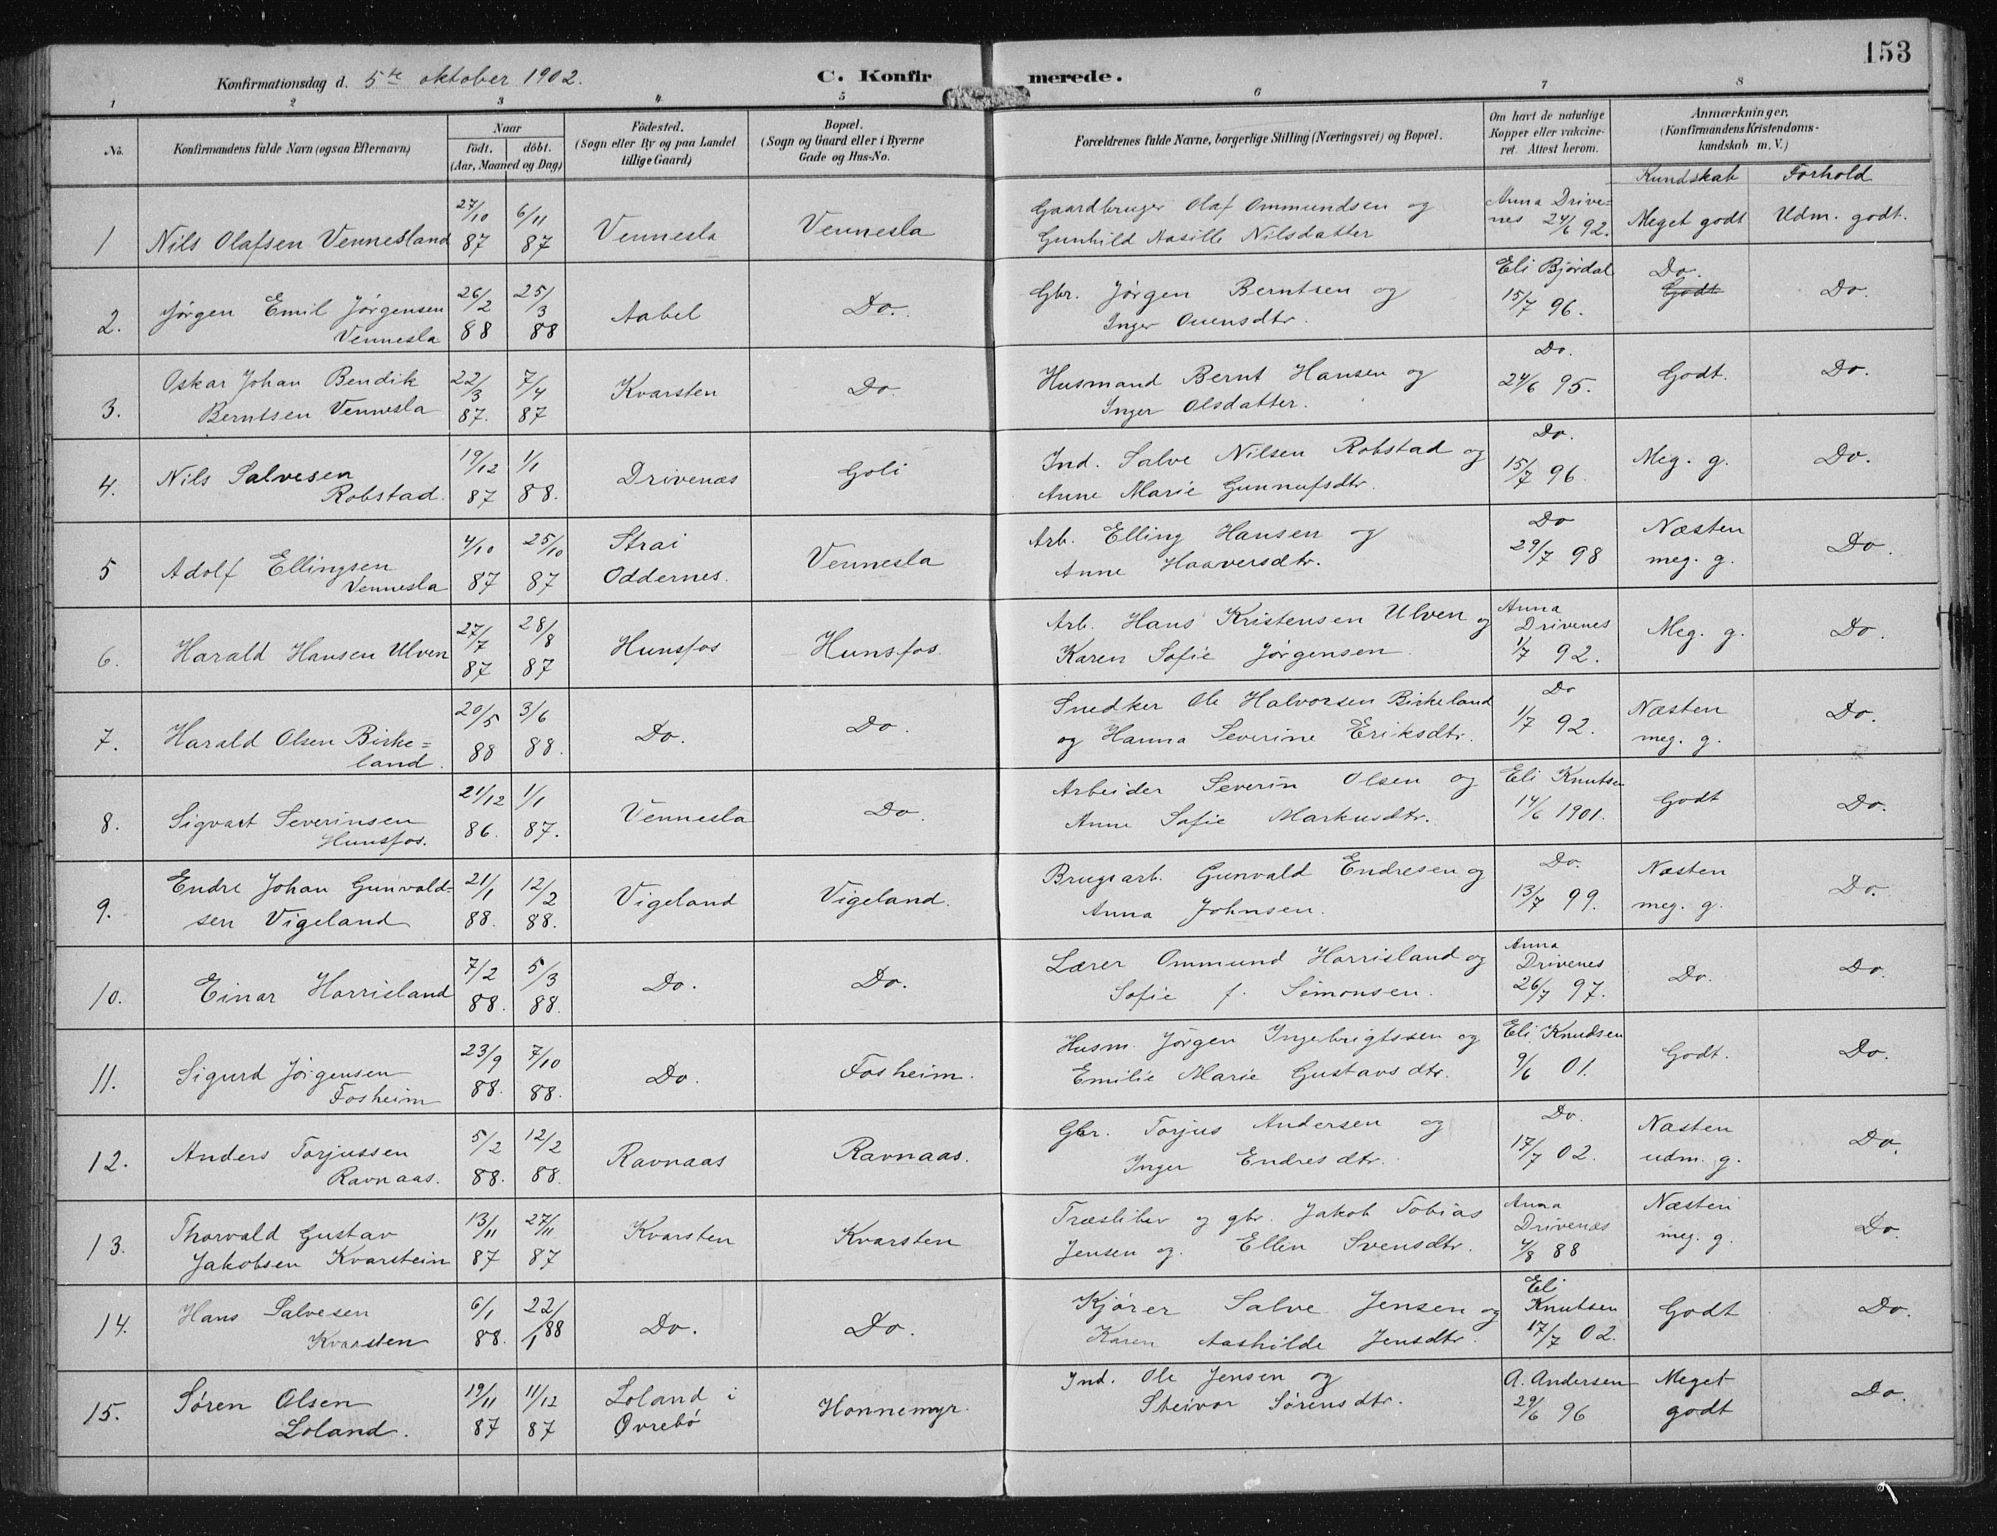 153
Konfirmationsdag d. 5te oktober 1902. C. Konfirmerede.
1 2 3 4 5 6 7 8
No. Konfirmandens fulde Navn (ogsaa Efternavn) Naar Födt. döbt. (Aar, Maaned og Dag) Födested. (Sogn eller By og paa Landet tillige Gaard) Bopæl. (Sogn og Gaard eller i Byerne Gade og Hus-No. Forældrenes fulde Navne, borgerlige Stilling (Næringsvei) og Bopæl. Om havt de naturlige Kopper eller vakcineret. Attest herom. Anmærkninger. (Konfirmandens Kristendomskundskab m. V.)
Kundskab Forhold
1 Nils Olafsen Vennesland 27/10 87 6/11 87 Vennesla Vennesla Gaardbruger Olaf Ommundsen og Gunhild Aasille Nilsdatter Anna Drivenes 24/6 92. Meget godt Udm. godt.
2. Jørgen Emil Jørgensen Vennesla 26/2 88 25/3 88 Aabel Do. Gbr. Jørgen Berntsen og Inger Ouensdtr. Eli Bjørdal 15/7 96. Do. Godt Do.
3. Oskar Johan Bendik Berntsen Vennesla 22/3 87. 7/4 87 Kvarsten Do. Husmand Bernt Hansen og Inger Olsdatter. Do. 24/6 95. Godt. Do.
4. Nils Salvesen Robstad. 19/12 87 1/1 88. Drivenæs Goli Ind. Salve Nilsen Robstad og Anne Marie Gunnufsdtr. Do. 15/7 96. Meg. g. Do.
5 Adolf Ellingsen Vennesla 4/10 87 25/10 87 Strai Oddernes. Vennesla Arb. Elling Hansen og Anne Haaversdtr. Do 29/7 98 Næsten meg. g. Do.
6. Harald Hansen Ulven 27/7 87 28/8 87 Hunsfos Hunsfos. Arb. Hans Kristensen Ulven og Karen Sofie Jørgensen. Anna Drivenes 1/7 92. Meg. g. Do.
7. Harald Olsen Birkeland. 20/5 88 3/6 88. Do. Do. Snedker Ole Halvorsen Birkeland og Hanna Severine Eriksdtr. Do 1/7 92. Næsten meg. g. Do.
8. Sigvart Severinsen Hunsfos. 21/12 86. 1/1 87. Vennesla Do. Arbeider Severin Olsen og Anne Sofie Markusdtr. Eli Knutsen 14/6 1901. Godt Do.
9. Endre Johan Gunvaldsen Vigeland 21/1 88. 12/2 88. Vigeland Vigeland. Brugsarb. Gunvald Endresen og Anna Johnsen. Do. 13/7 99. Næsten meg. g. Do.
10. Einar Horrisland 7/2 88. 5/3 88. Do. Do. Lærer Ommund Horrisland og Sofie f. Simonsen. Anna Drivenes 26/7 97. Do. Do.
11. Sigurd Jørgensen Fosheim 23/9 88. 7/10 88. Do. Fosheim. Husm. Jørgen Ingebrigtssen og Emilie Marie Gustavsdtr. Eli Knudsen 9/6 01. Godt. Do.
12. Anders Torjussen Ravnaas. 5/2 88. 12/2 88. Ravnaas Ravnaas. Gbr. Torjus Andersen og Inger Endresdtr. Do. 17/7 02. Næsten udm. g. Do.
13. Thorvald Gustav Jakobsen Kvarstein 13/11 87 27/11 87 Kvarsten Kvarsten Træsliber og gbr. Jakob Tobias Jensen og Ellin Svensdtr. Anna Drivenæs 4/8 88 Næsten meg. g. Do.
14. Hans Salvesen Kvarsten 6/1 88. 22/1 88 Do. Do. Kjører Salve Jensen og Karen Aashilde Jensdtr. Eli Knutsen 17/7 02. Godt Do.
15. Søren Olsen Loland. 19/11 87 11/12 87 Loland i Øvrebø Honnemyr. Ind. Ole Jensen og Steivor Sørensdtr. A. Andersen 29/6 96 Meget godt Do.